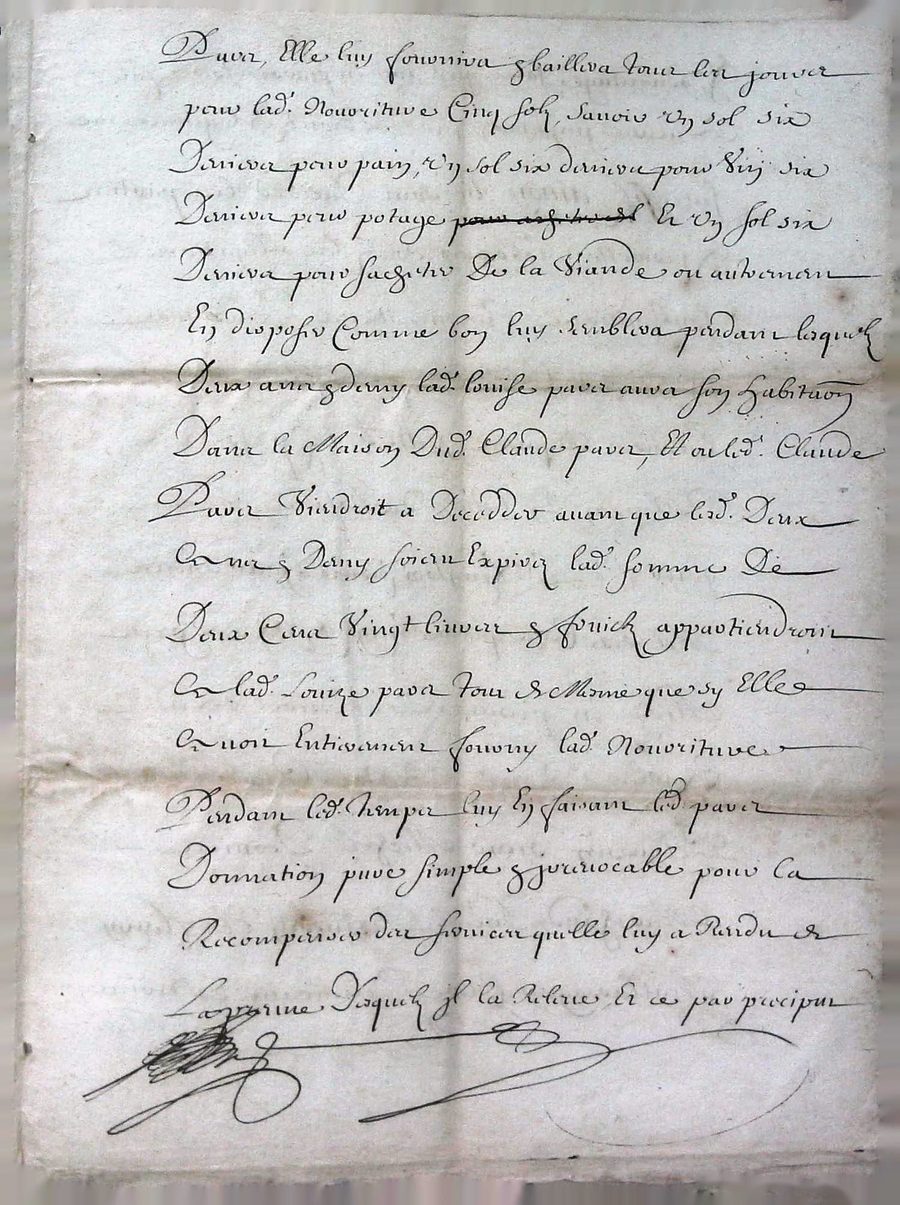 Pavez, Elle luy fournira & baillera tous les jours
pour lad. Nouriture Cinq solz, savoir un sol six
Deniers pour pain, un sol six deniers pour Vin six
Deniers pour potage pour achepter Et un sol six
Deniers pour sachepter De la Viande ou autrement
En disposer Comme bon luy semblera pendant lesquelz
Deux ans & demy lad. louise pavez aura son habitaon
Dans la Maison Dud. Claude pavez, Et ou led. Claude
Pavez Viendroit a Decedder avant que lesd. Deux
Ans & Demy soient Expirez lad. somme De
Deux Cens Vingt livres & fruictz appartiendront
A lad. Louize pavez tout de Mesme que sy Elle
Avoit Entierement fourny lad. Nouriture
Pendant led. temps luy En faisant led. pavez
Donnation pure simple & jrrevocable pour la
Recompense des services quelle luy a Rendu &
Desquelz jl la Releve Et ce par preciput